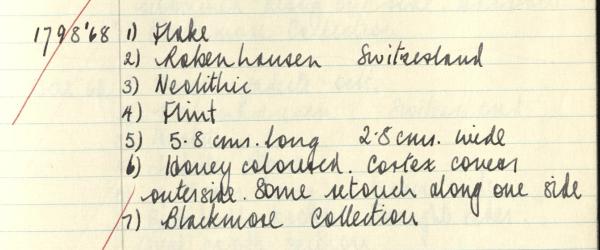 1798'68 1) Flake
2) Robenhausen Switzerland
3) Neolithic
4) Flint
5) 5.8 cms. long 2.8 cms. wide
6) Honey coloured. Cortex covers
outerside. Some retouch along one side
7) Blackmore Collection